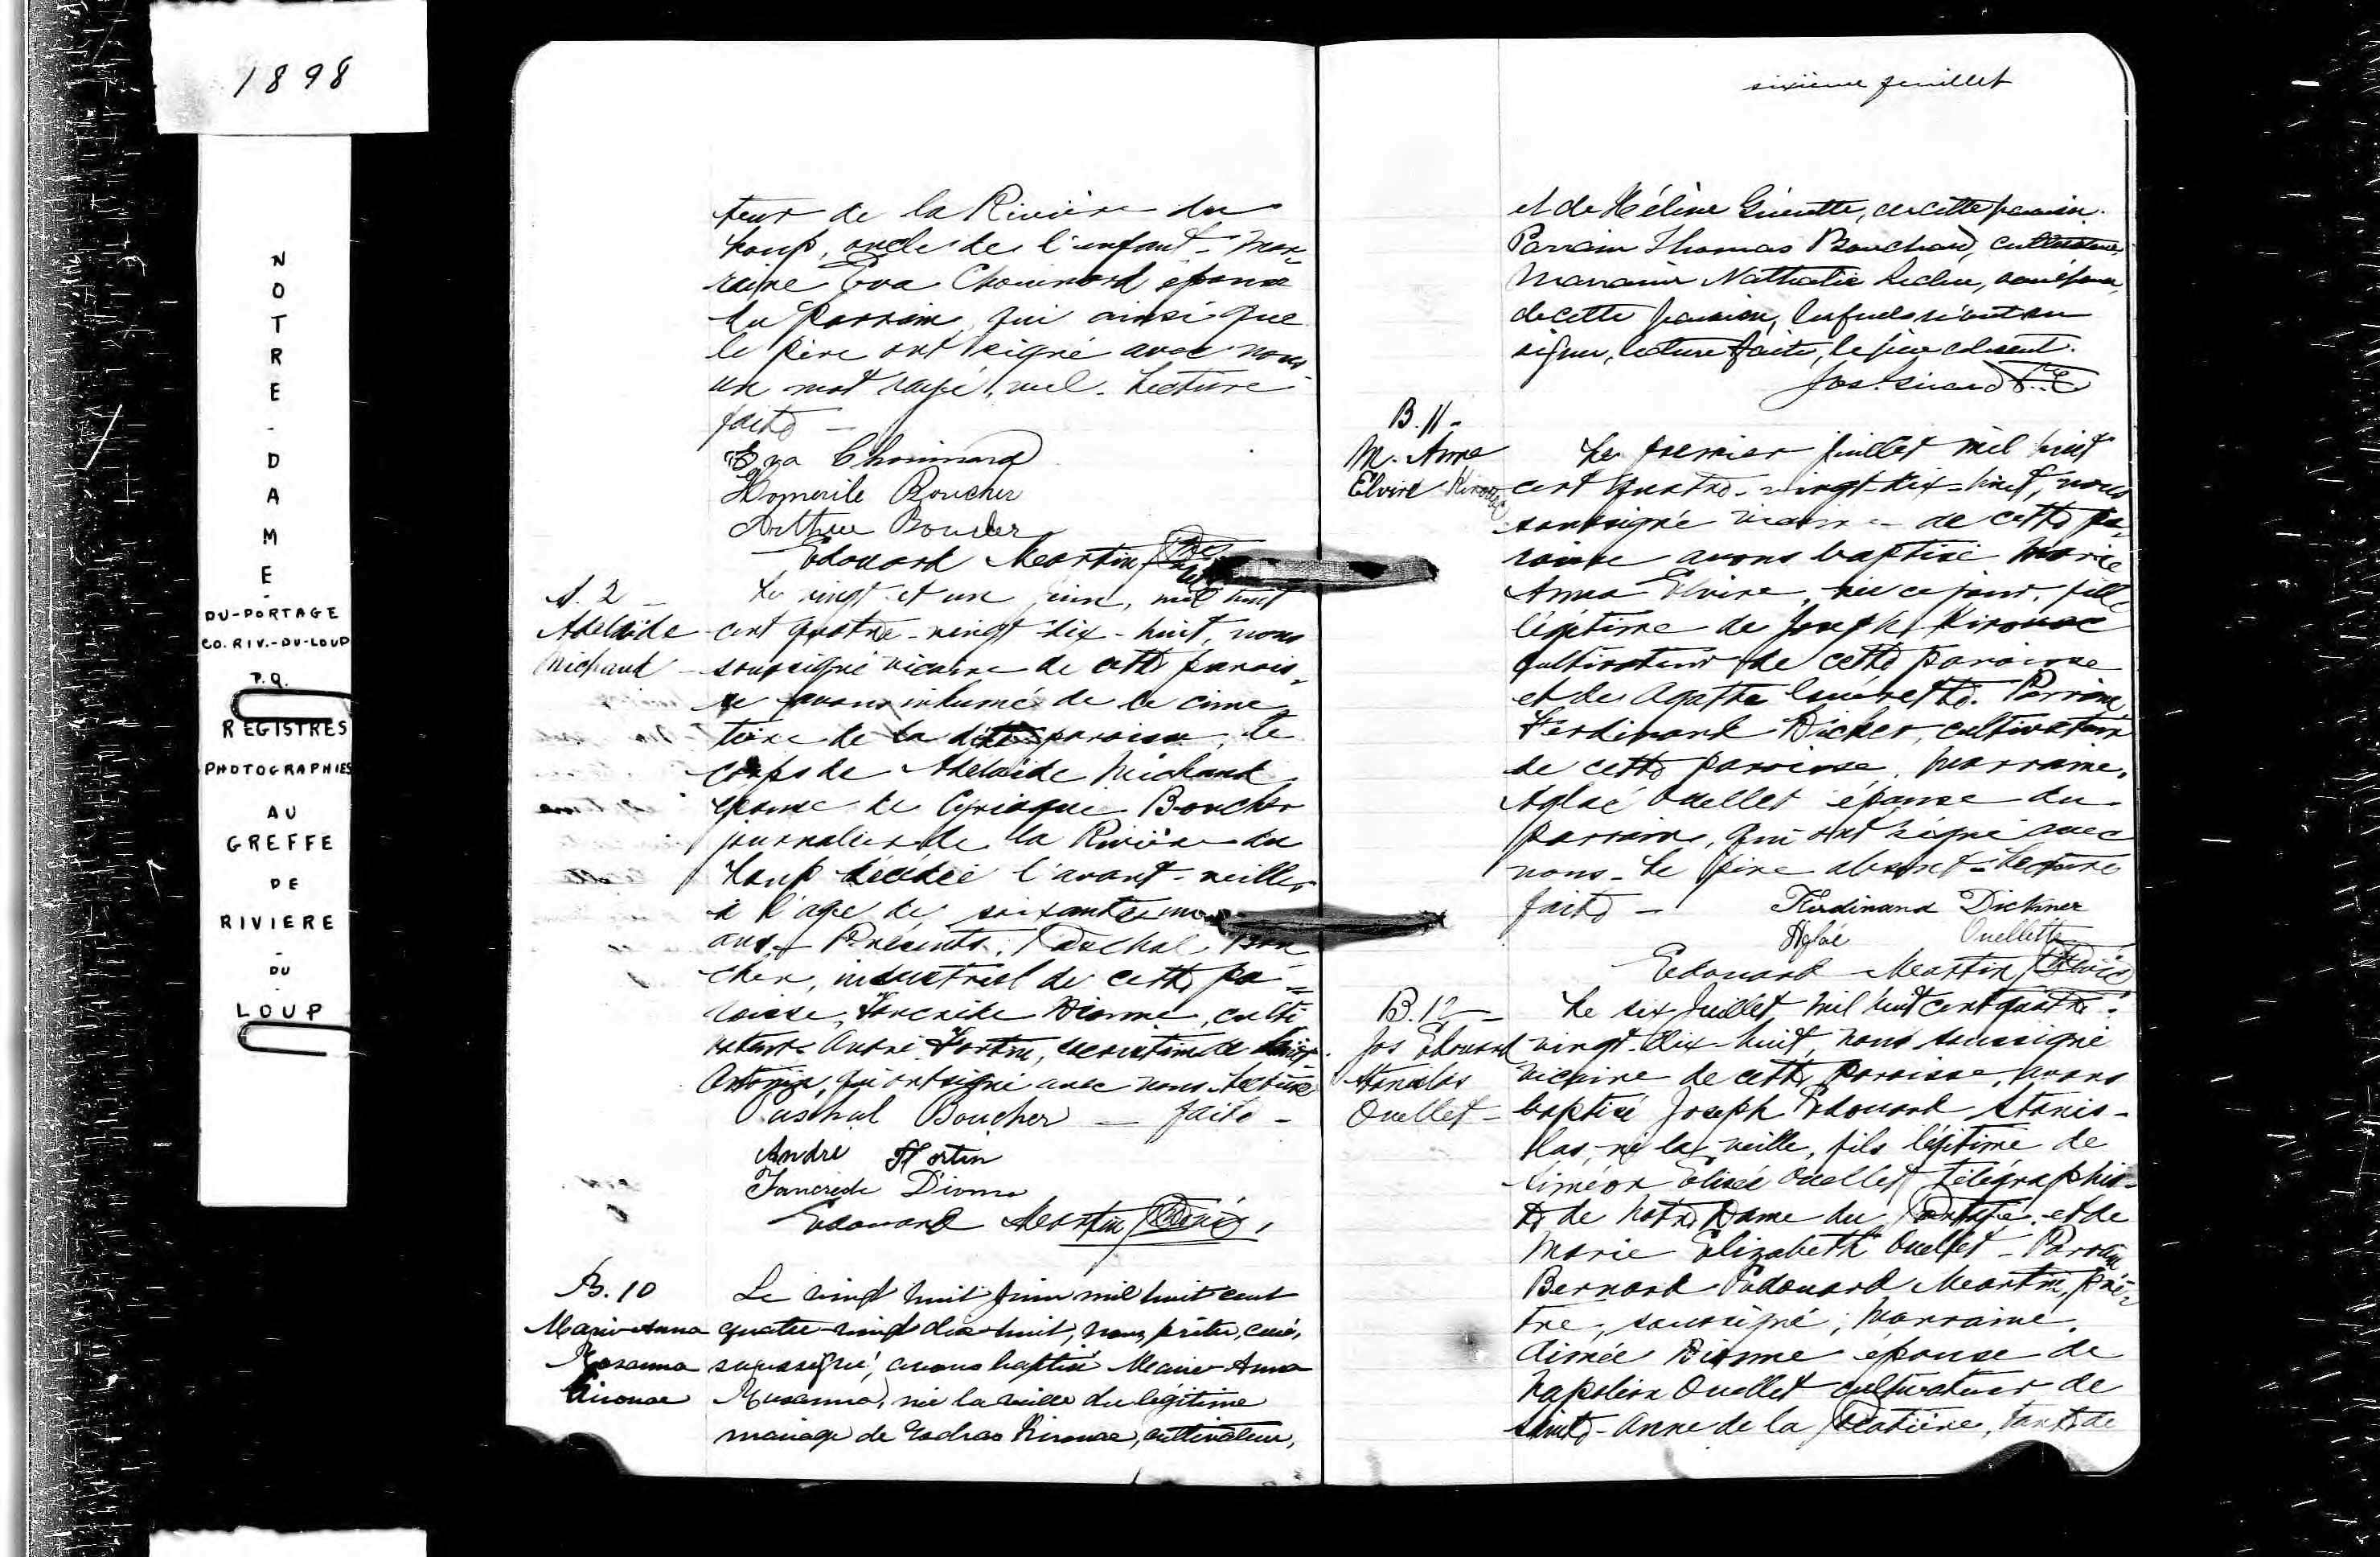 1898
NOTRE-DAME-
DU-PORTAGE
CO. RIV.-DU-LOUP
P.Q.
REGISTRES
PHOTOGRAPHIES
AU
GREFFE
DE
RIVIERE
-
DU
-
LOUP
teur de la Rivière du
Loup, oncle de l'enfant - Mar-
raine Eva Chouinard épouse
du parrain, qui ainsi que
le père ont signé avec nous
un mot rayé, nul. Lecture
faite -
Eva Chouinard
Boucher
Arthur Boucher
Edouard Martin Ptre
S. 2 -
Adelaide
Michaud
Le vingt et un juin, mil huit
cent quatre-vingt-dix-huit, nous
soussigné vicaire de cette parois-
se avons inhumé de le cime-
tière de la dite paroisse, le
corps de Adelaide Michaud
épouse de Cyriaque Boucher
journalier de la Rivière du
Loup décédée l'avant-veille
à l'age de soixante
ans. - Présents, Paschal Bou-
cher, industriel de cette pa-
roisse, Tancrède Dionne, culti-
vateur André Fortin, de
Antonin, qui ont signé avec nous. Lecture
Paschal Boucher - faite -
André Fortin
Tancrede Dionne
Edouard Martin Ptre
B. 10
Marie-Anna
Rosanna
Kirouac
Le vingt huit juin mil huit cent
quatre-vingt dix-huit, nous, prêtre, curé,
soussigné, avons baptisé Marie-Anna
Rosanna, née la veille du légitime
mariage de Kirouac, cultivateur,
sixième feuillet
et de Hélène Guérette, de cette paroisse.
Parrain Thomas Bouchard, cultivateur,
Marraine Nathalie Leclerc,
de cette paroisse, lesquels n'ont su
signer, lecture faite, le père absent.
Jos. Ptre
B. 11 -
M. Anna
Elvire Kirouac
Le premier juillet mil huit
cent quatre-vingt-dix-huit, nous
soussigné vicaire de cette pa-
roisse avons baptisé Marie
Anna Elvire, née ce jour, fille
légitime de Joseph Kirouac
cultivateur de cette paroisse
et de Agathe Guérette. Parrain
Ferdinand Dickner, cultivateur
de cette paroisse, Marraine,
Aglaé Ouellet épouse du
parrain, qui ont signé avec
nous - Le père absent - Lecture
faite -
Ferdinand Dickner
Aglaé Ouellette
Edouard Martin Ptre
B. 12 -
Jos Edouard
Stanislas
Ouellet -
Le six juillet mil huit cent quatre-
vingt-dix-huit, nous soussigné
vicaire de cette paroisse, avons
baptisé Joseph Edouard Stanis-
las, né la veille, fils légitime de
Siméon Elisée Ouellet télégraphis-
te de Notre Dame du Portage, et de
Marie Elizabeth Ouellet - Parrain
Bernard Edouard Martin, prê-
tre, soussigné, Marraine,
Aimée Dionne épouse de
Napoléon Ouellet cultivateur de
Sainte-Anne de la Pocatière, tante de